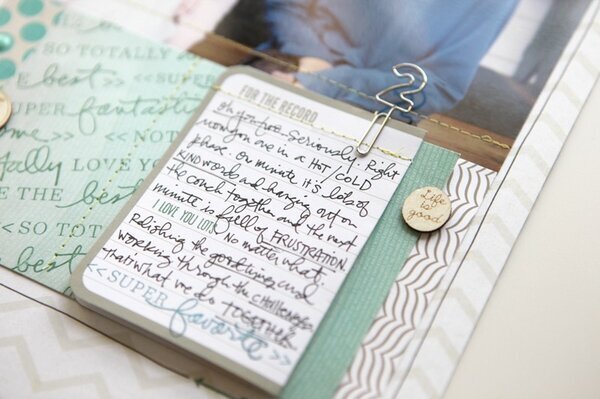 SO TOTALLY
the best >>
SUPER fantastic
<< NOT
LOVE YOU
the best
<<SO TOT
SUPER
best
2
FOR THE RECORD
oh, you two. Seriously. Right
now you are in a HOT/COLD
phase. One minute it's lots of
KIND words and hanging out on
the couch together and the next
minute is full of FRUSTRATION.
I LOVE YOU LOTS No matter what,
relishing the good times and
working through the challenges
that's what we do TOGETHER
<<SUPER
favorite >>
Life
is
good